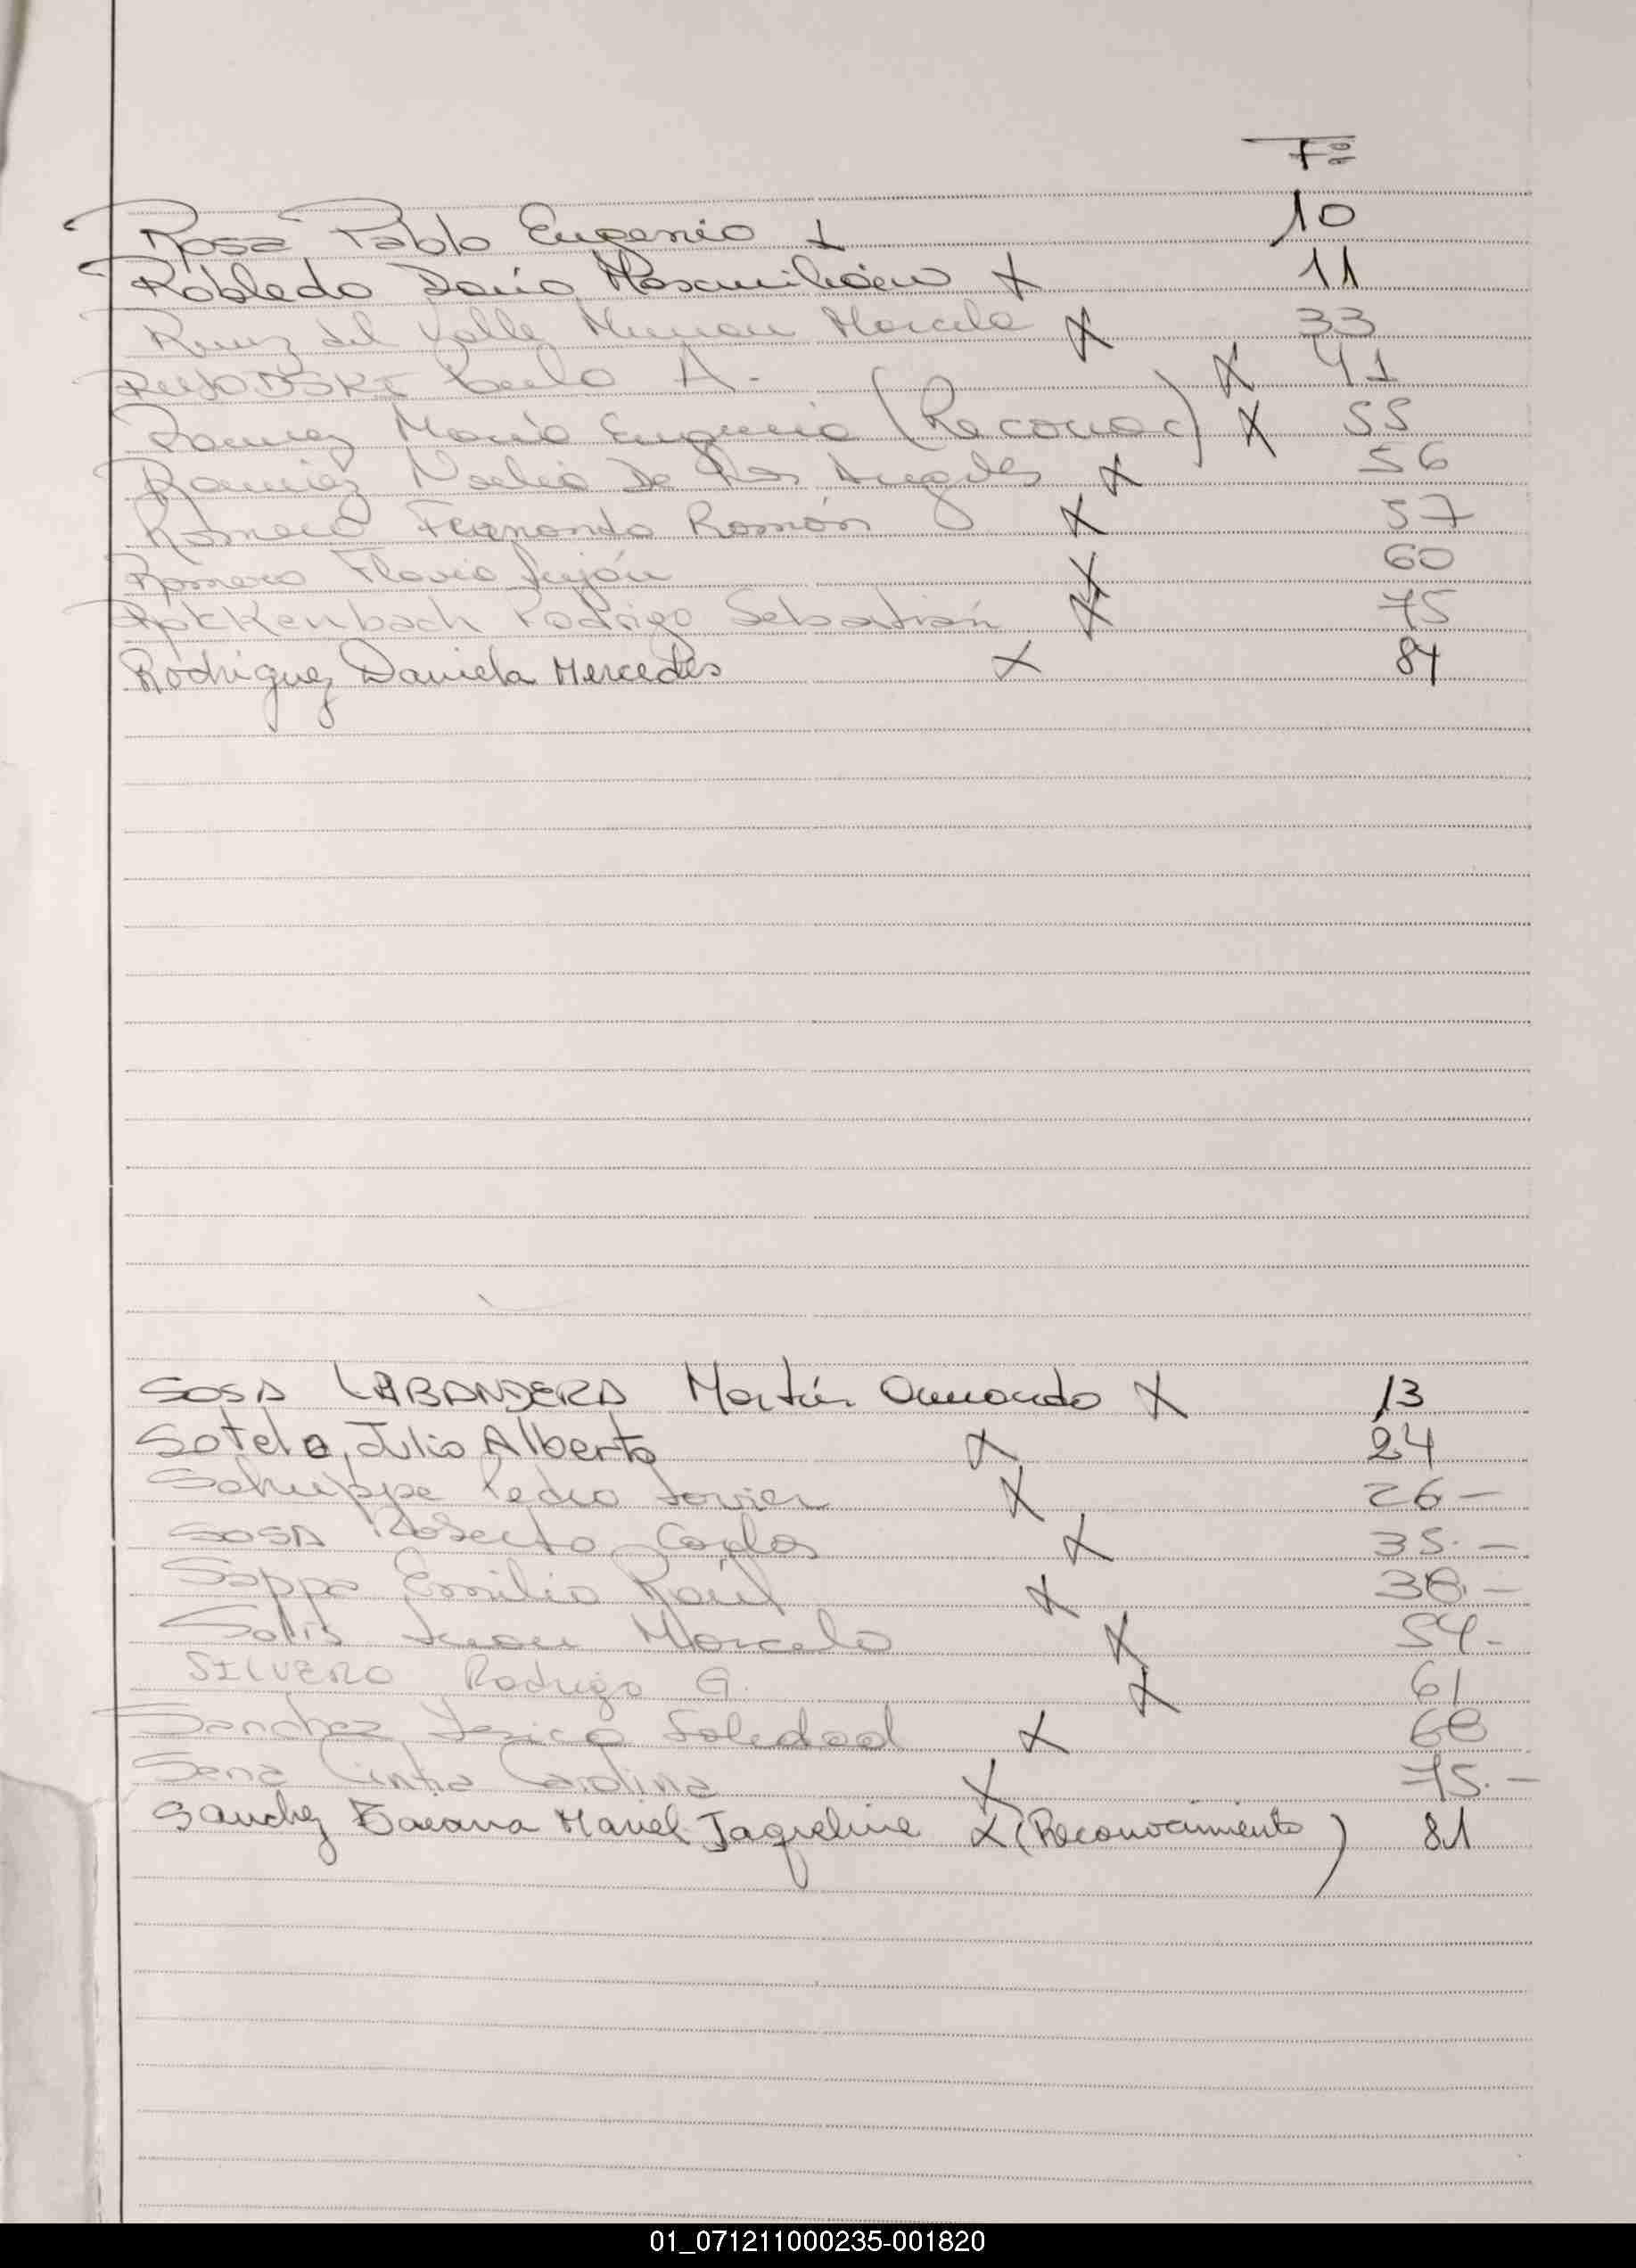 Fº
Rosa Pablo Eugenio x 10
Robledo Darío Maximiliano x 11
del Valle Marcela x 33
A. x 41
Ramirez María Eugenia (Reconoc) x 55
Ramirez Noelia De Los Angeles x 56
Romero Fernando Román x 57
Romero Flavio Luján x 60
Rotkenbach Rodrigo Sebastián x 75
Rodriguez Daniela Mercedes x 84
SOSA LABANDERA Martín Armando x 13
Sotelo, Julio Alberto x 24
Schuppe Pedro Javier x 26 -
SOSA Roberto Carlos x 35. -
Sappa Emilio Raúl x 38. -
Solis Juan Marcelo x 54 -
SILVERO Rodrigo G. x 61
Sanchez Yesica Soledad x 68
Sena Cintia Carolina x 75. -
Sanchez Mariel Jaqueline x (Reconocimiento) 81
01_071211000235-001820